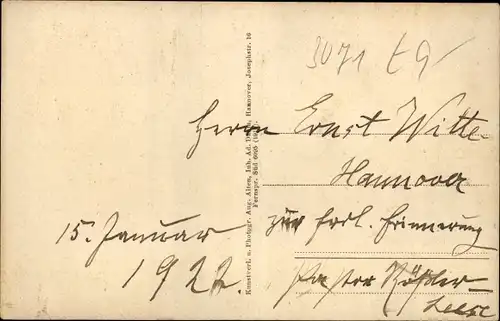 3071 t9
Herrn Ernst Witte
Hannover
15. Januar
1922.
zur frdl. Erinnerung
Pastor
Kunstverl. u. Photogr. Aug. Alten, Inh. Ad. Hannover, Josephstr. 16
Fernspr. Süd 6005